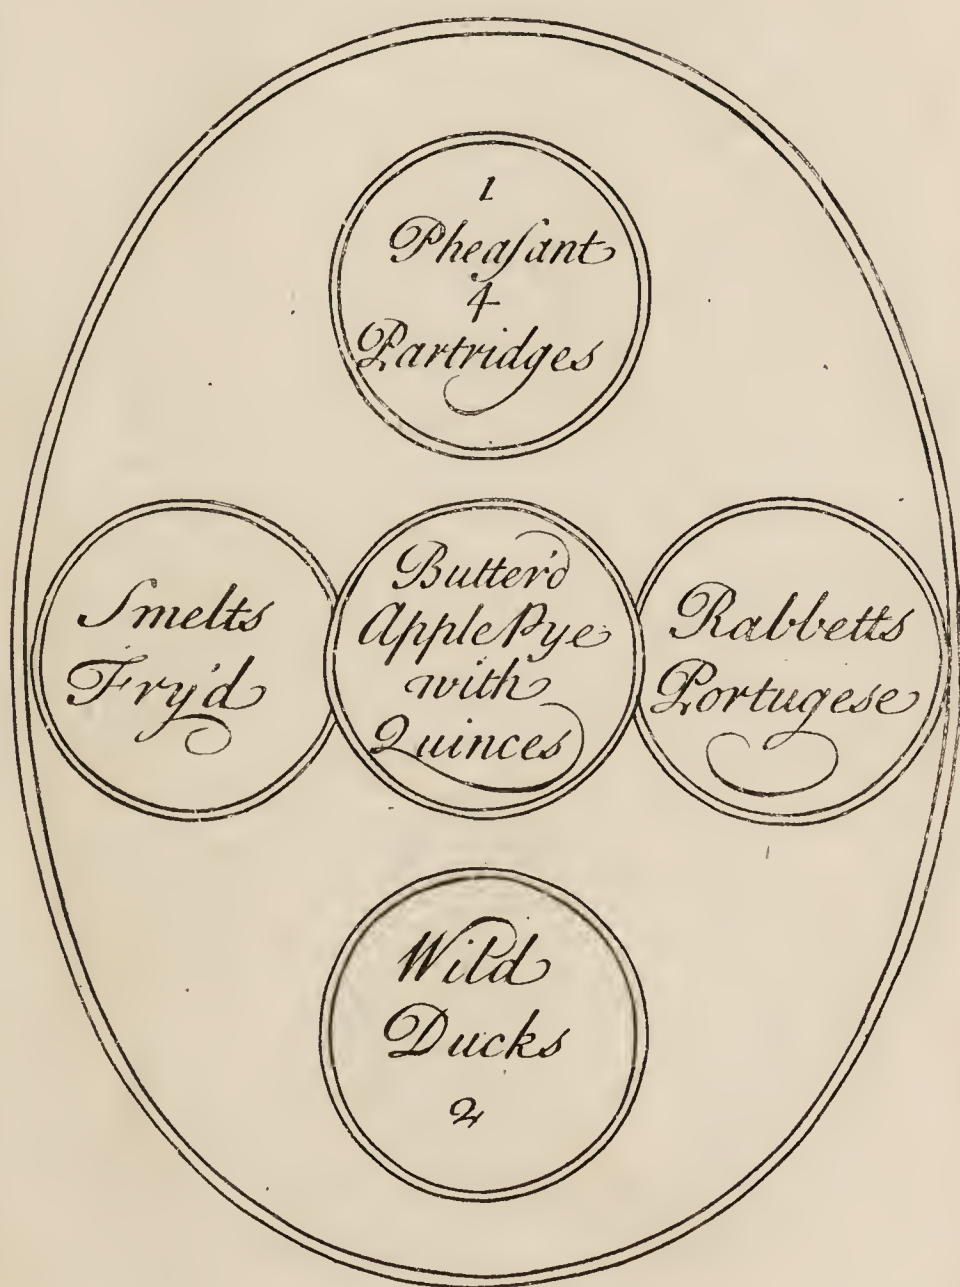 1
Pheaſant
4
Partridges
Smelts
Fry'd
Butter'd
Apple Pye
with
Quinces
Rabbetts
Portugese
Wild
Ducks
2